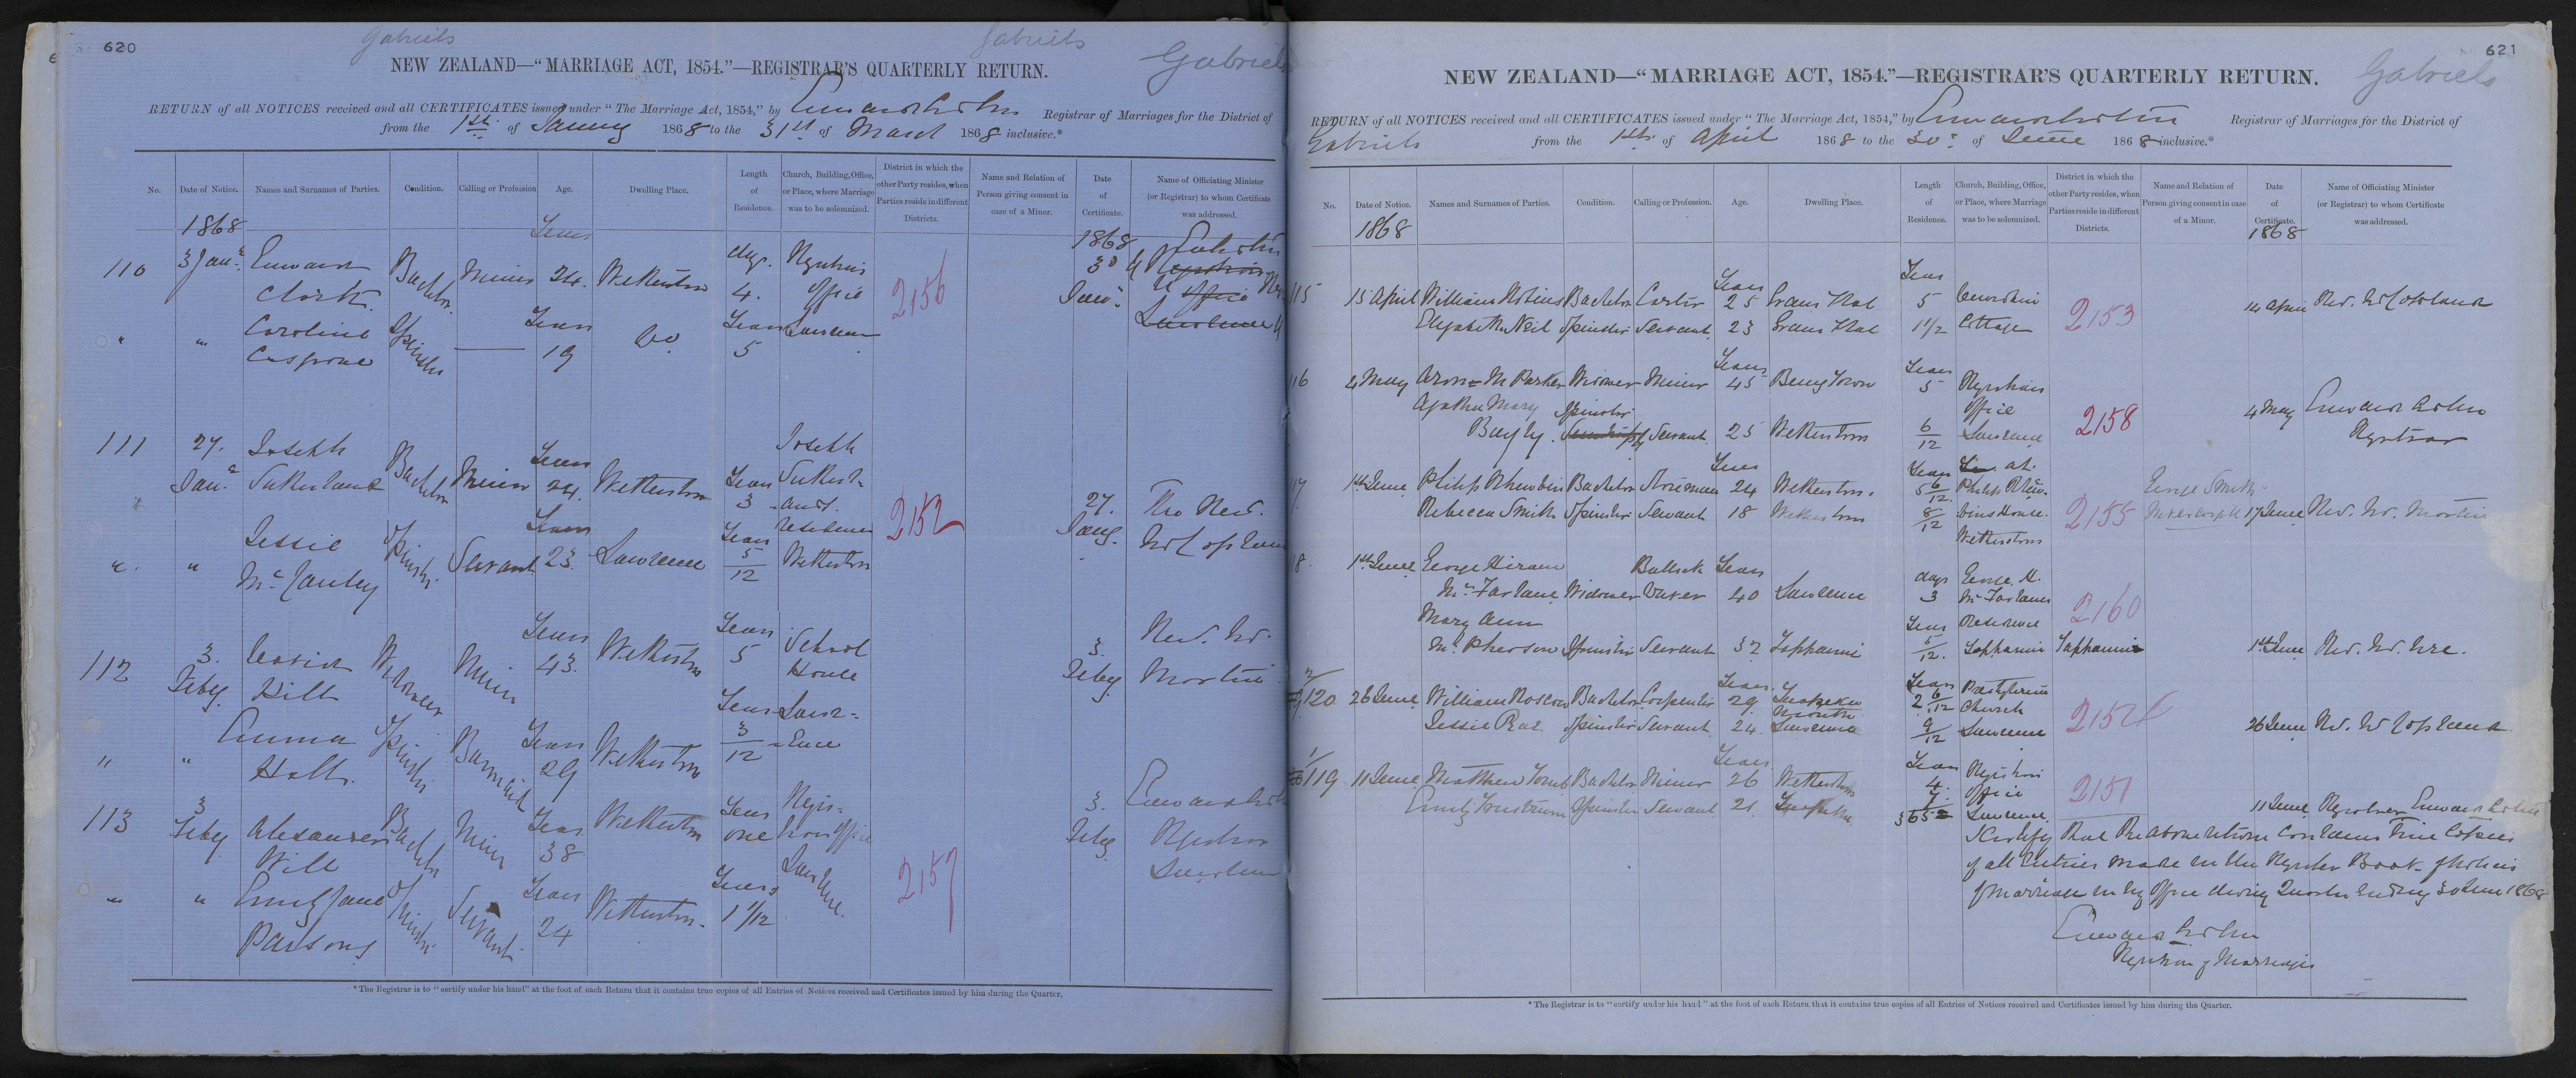 620
Gabriels
Gabriels
Gabriels
NEW ZEALAND—"MARRIAGE ACT, 1854."—REGISTRAR'S QUARTERLY RETURN.
RETURN of all NOTICES received and all CERTIFICATES issued under "The Marriage Act, 1854," by Registrar of Marriages for the District of
from the 1st of January 1868 to the 31st of March 1868 inclusive.*
No. Date of Notice. Names and Surnames of Parties. Condition. Calling or Profession Age. Dwelling Place. Length of Residence. Church, Building, Office, or Place, where Marriage was to be solemnized. District in which the other Party resides, when Parties reside in different Districts. Name and Relation of Person giving consent in case of a Minor. Date of Certificate. Name of Officiating Minister (or Registrar) to whom Certificate was addressed.
1868 Years 1868
110 3 Jany. Edward Clark Bachelor Miner 24 Wetherstons days 4 Registrar's Office Lawrence 2156 3d Jany.
" " Caroline Spinster — Years 19 Do Years 5
111 27. Jany. Joseph Sutherland Bachelor Miner Years 24 Wetherstons Years 3 Joseph Sutherland's residence Wetherstons 2152 27. Jany. The Revd. W Copland
" " Jessie McCauley Spinster Servant Years 23 Lawrence Years 5/12
112 3. Feby. David Hill Widower Miner Years 43 Wetherstons Years 5 School House Lawrence 3. Feby. Rev. W. Martin
" " Emma Holt Spinster Barmaid Years 29 Wetherstons Years 3/12
113 3 Feby. Alexander Will Bachelor Miner Years 38 Wetherstons Years one Registrar's Office Lawrence 2157 3. Feby. Registrar Lawrence
" " Emily Jane Parsons Spinster Servant Years 24 Wetherstons Years 1 1/12
*The Registrar is to "certify under his hand" at the foot of each Return that it contains true copies of all Entries of Notices received and Certificates issued by him during the Quarter.
621
Gabriels
NEW ZEALAND—"MARRIAGE ACT, 1854."—REGISTRAR'S QUARTERLY RETURN.
RETURN of all NOTICES received and all CERTIFICATES issued under "The Marriage Act, 1854," by Registrar of Marriages for the District of
Gabriels from the 1st of April 1868 to the 30 of June 1868 inclusive.*
No. Date of Notice. Names and Surnames of Parties. Condition. Calling or Profession. Age. Dwelling Place. Length of Residence. Church, Building, Office, or Place, where Marriage was to be solemnized. District in which the other Party resides, when Parties reside in different Districts. Name and Relation of Person giving consent in case of a Minor. Date of Certificate. Name of Officiating Minister (or Registrar) to whom Certificate was addressed.
1868 1868
115 15 April William Bachelor Carter Years 25 Evans Flat Years 5 Cottage 2153 14 April Rev. W Copland
Elizabeth Neil Spinster Servant 23 Evans Flat 1 1/2
116 4 May M Parker Widower Miner Years 45 Years 5 Registrar's Office Lawrence 2158 4 May Registrar
Agatha Mary Bayly Spinster Servant 25 Wetherstons 6/12
17 1st June Philip Bachelor 24 Wetherstons Years 5 6/12 at Philip House Wetherstons 2155 George Smith 17 June Rev. W. Martin
Rebecca Smith Spinster Servant 18 Wetherstons 8/12
18. 1st June George Hiram McFarlane Widower Bullock Driver Years 40 Lawrence days 3 George H. McFarlanes Residence 2160
Mary Ann McPherson Spinster Servant 32 Tapanui Years 5/12 Tapanui Tapanui 1st June Rev. W.
120 26 June William Roscow Bachelor Carpenter Years 29 Years 2 6/12 Presbyterian Church Lawrence 2154 26 June Rev. W Copland
Jessie Rae Spinster Servant 24 Lawrence 9/12
119 11 June Matthew Bachelor Miner Years 26 Wetherstons Years 4 Registrar's Office Lawrence 2151 11 June Registrar
Emily Spinster Servant 21
I certify that the above return contains true copies
of all Entries made in the Register Book of Notices
of Marriage in my Office during Quarter ending 30 June 1868
Registrar of Marriages
*The Registrar is to "certify under his hand" at the foot of each Return that it contains true copies of all Entries of Notices received and Certificates issued by him during the Quarter.